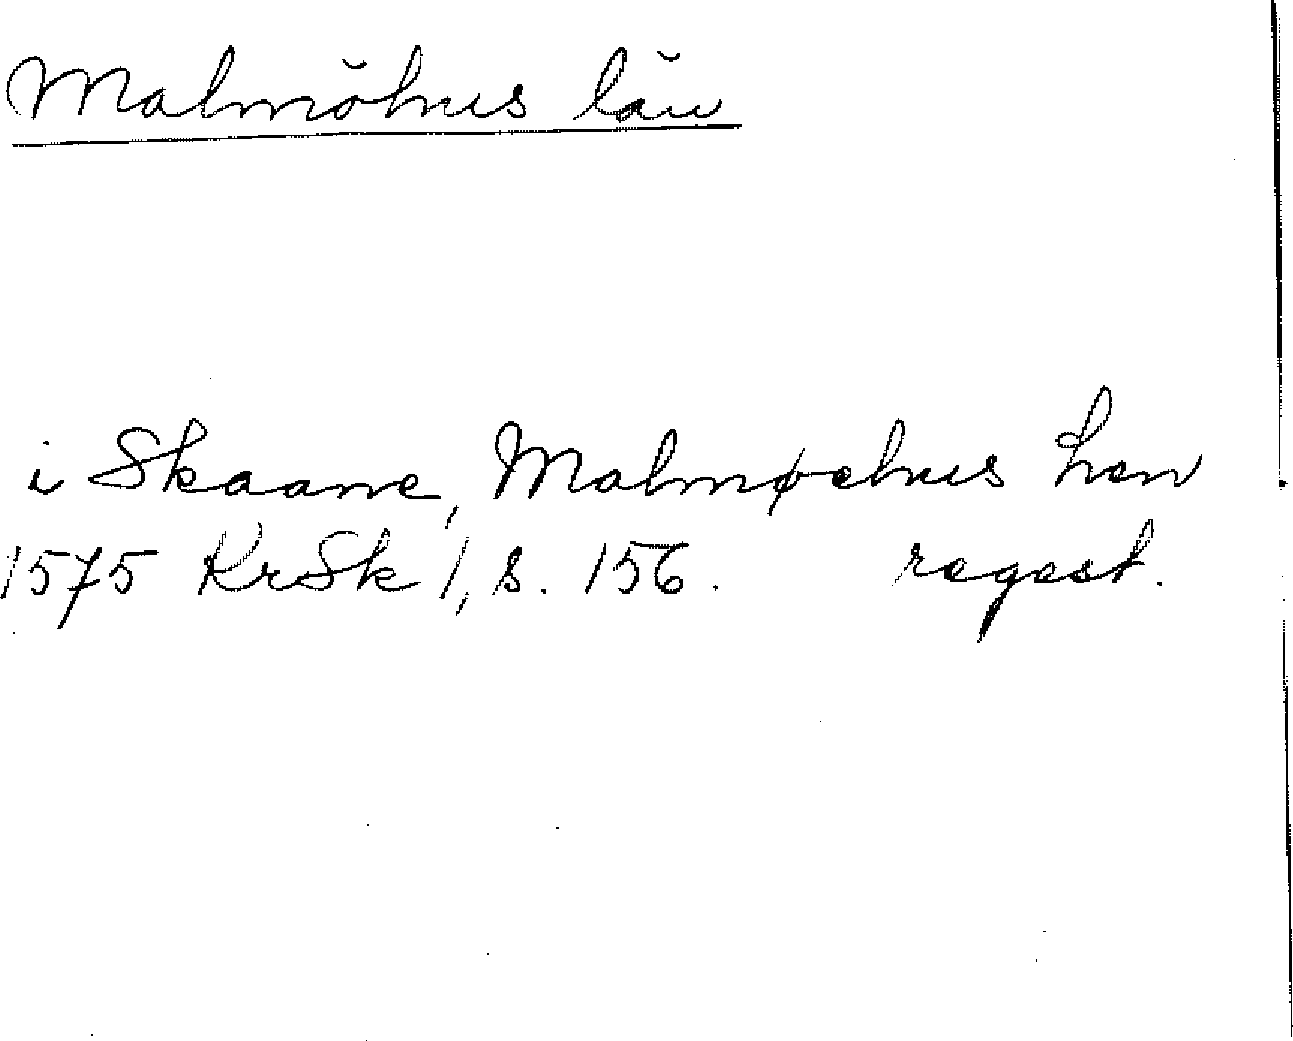 Malmöhus län
i Skaane, Malmøehus Len
1575 KrSk 1, s. 156. regest.